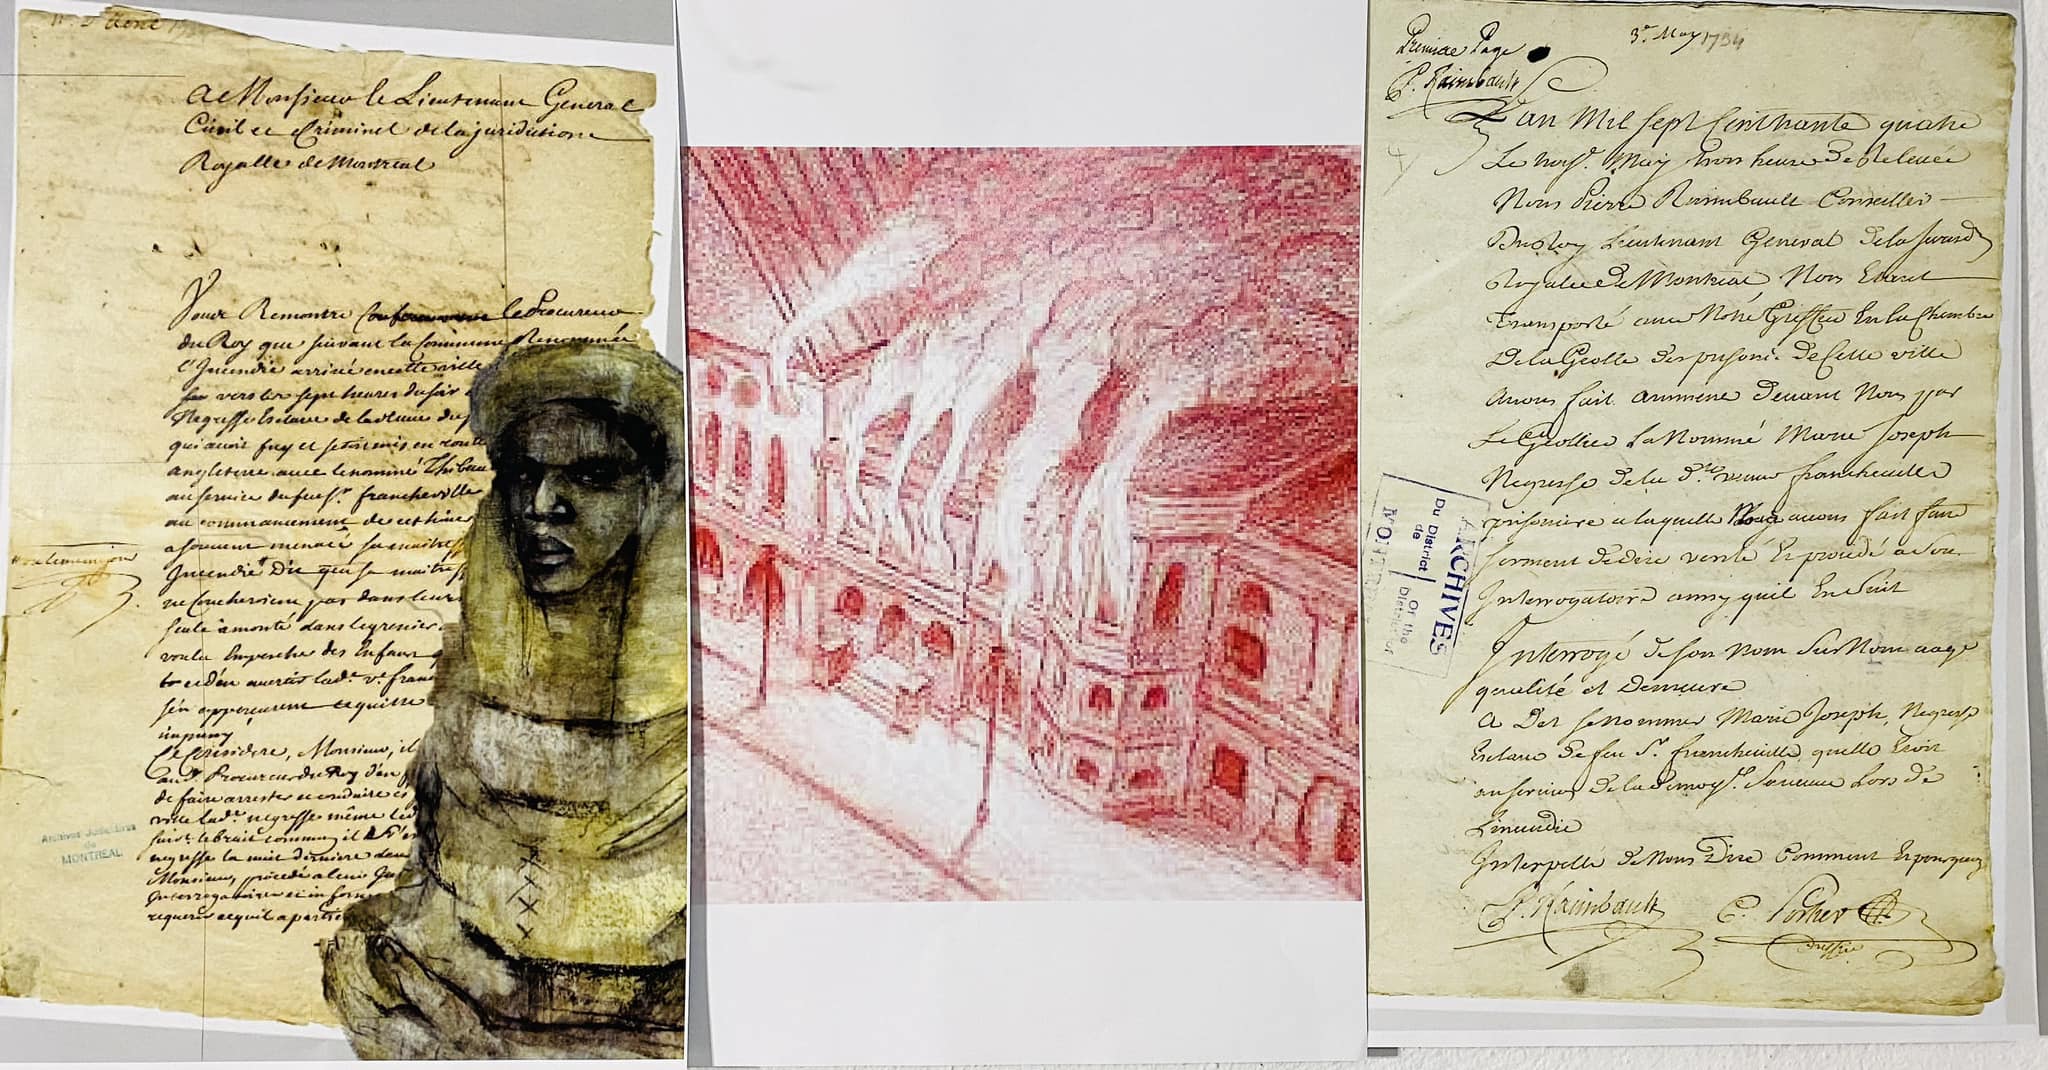 11e d'avril
A Monsieur le Lieutenant General
Civil et Criminel de la juridiction
Royalle de Montreal
Vous Remontre le Procureur
du Roy que suivant la Commune Renommée
l'Incendie arrivé en cette ville
vers les sept heures du soir
Negresse Esclave de la
qui avoit fuy et s'etoit mis en route
angleterre avec le nommé Thibau
au service du feu Sr. francheville
au commancement de cet hiver
a souvent menacé sa maitresse
Incendié Dit que sa maitre
ne Coucheroient pas dans leurs
seule a monté dans le grenier
voulu Empecher des Enfans
lad. ve. fran
s'en apperçurent et qu'il
impuny
Ce Consideré, Monsieur, il
au Sr. Procureur du Roy d'en
de faire arrester et conduire es
ville lad. negresse même led
suivt. le bruit commun, il
negresse la nuit derniere dans
Monsieur, procedé a leur
Interrogatoire et inform
requerir ce qu'il apartien
Archives Judiciaires
de
MONTREAL
Premiere Page
P. Raimbault
3e. May 1734
L'an Mil sept Cent trante quatre
Le trois. May trois heures de Relevée
Nous Pierre Raimbault Conseiller
Du Roy Lieutenant General de la Jurisdon
Royalle de Montreal Nous Estant
Transporté avec Notre Greffier En la Chambre
De la Geolle des prisons de Cette ville
Avons fait ammener devant Nous par
Le Geollier La Nommé Marie Joseph
Negresse de la de. veuve francheville
prisoniere a laquelle Nous avons fait faire
serment de dire verité Et procédé a Son
Interrogatoire ainsy qu'il En Suit
Interrogé de son Nom Sur Nom aage
qualité et Demeure
A Dit se nommer Marie Joseph, Negresse
Esclave de feu Sr. francheville, quelle Etoit
au service de la Lors de
L'incendie
Interpellé de Nous Dire Comment Et pourquoy
P. Raimbault
C. Porlier
Greffier
ARCHIVES
Du District | Of the
de | District of
MONTREAL